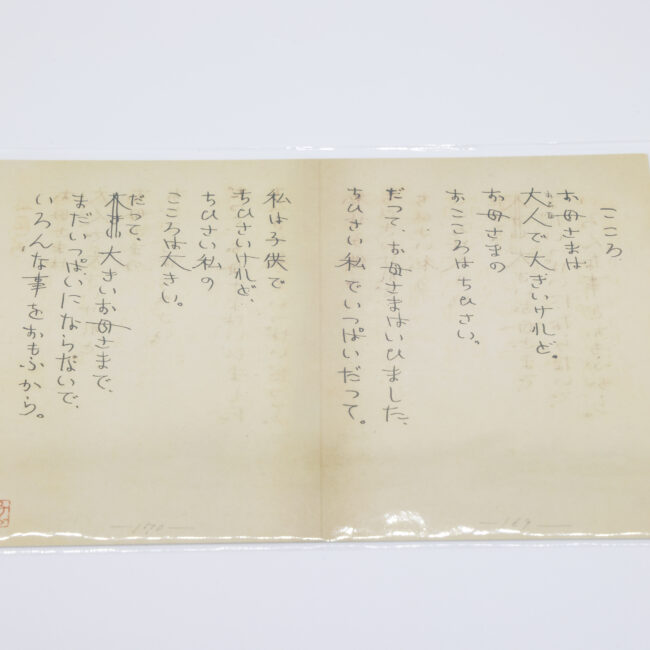 こころ
お母さまは
大人で大きいけれど。
お母さまの
おこころはちひさい。
だって、お母さまはいひました、
ちひさい私でいっぱいだって。
私は子供で
ちひさいけれど、
ちひさい私の
こころは大きい。
だって、
大きいお母さまで、
まだいっぱいにならないで、
いろんな事をおもふから。
—169—
—170—